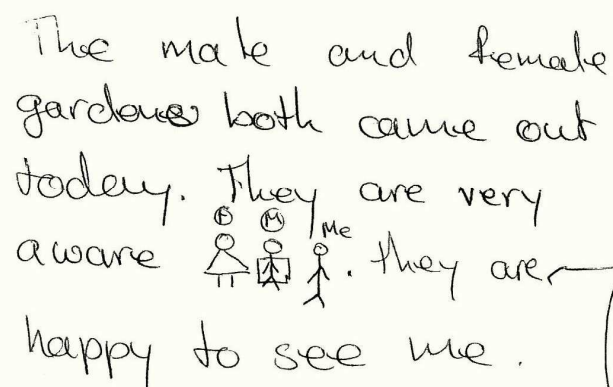 The male and female
gardens both came out
today. They are very
F M Me
aware . they are
happy to see me.